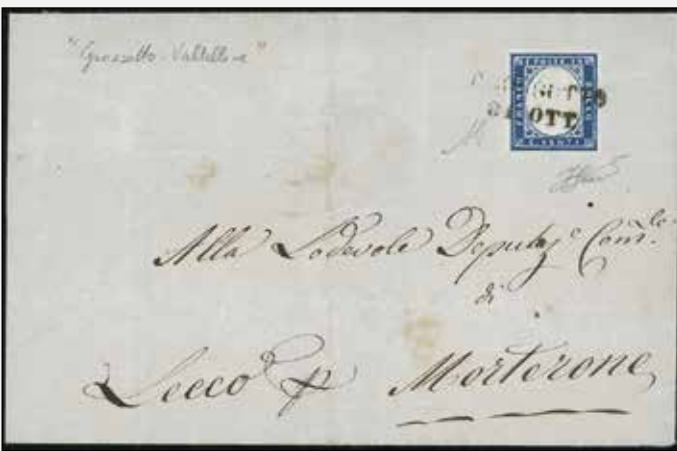 "Grosotto - Valtellina"
FRANCO
C. POSTE
BOLLO
OTT
Alla Lodevole Deputaz.e Com.le
di
Lecco p Morterone